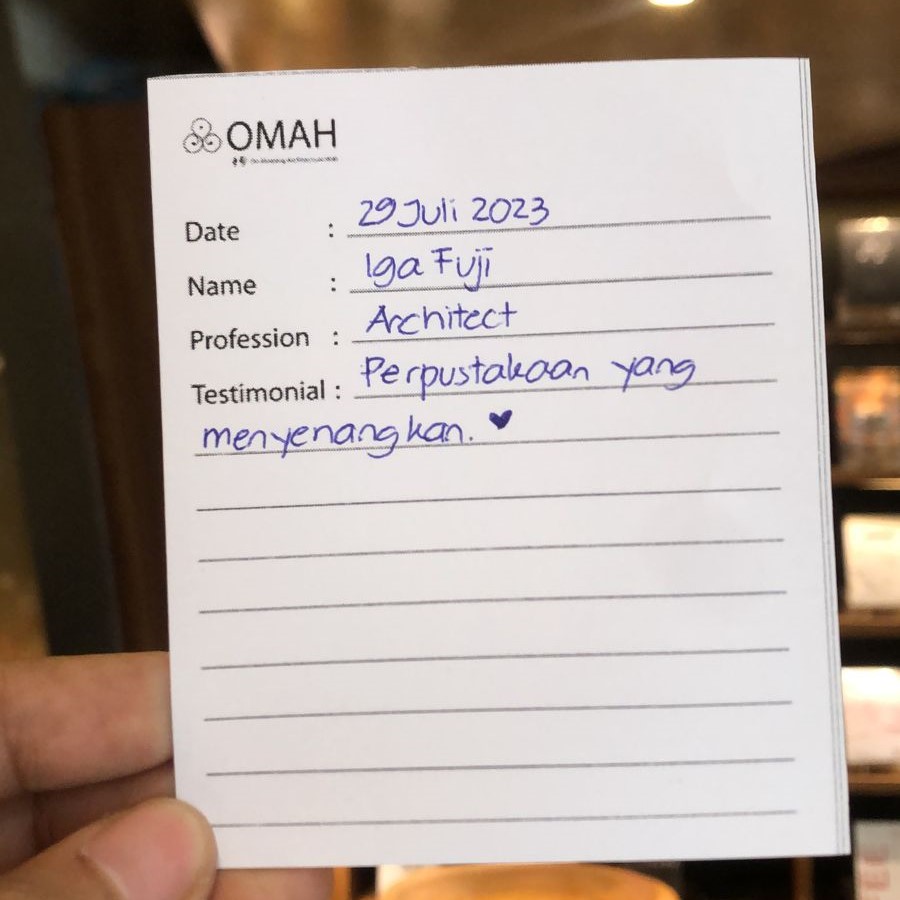 OMAH
Date : 29 Juli 2023
Name : Iga Fuji
Profession : Architect
Testimonial : Perpustakaan yang
menyenangkan. ♥